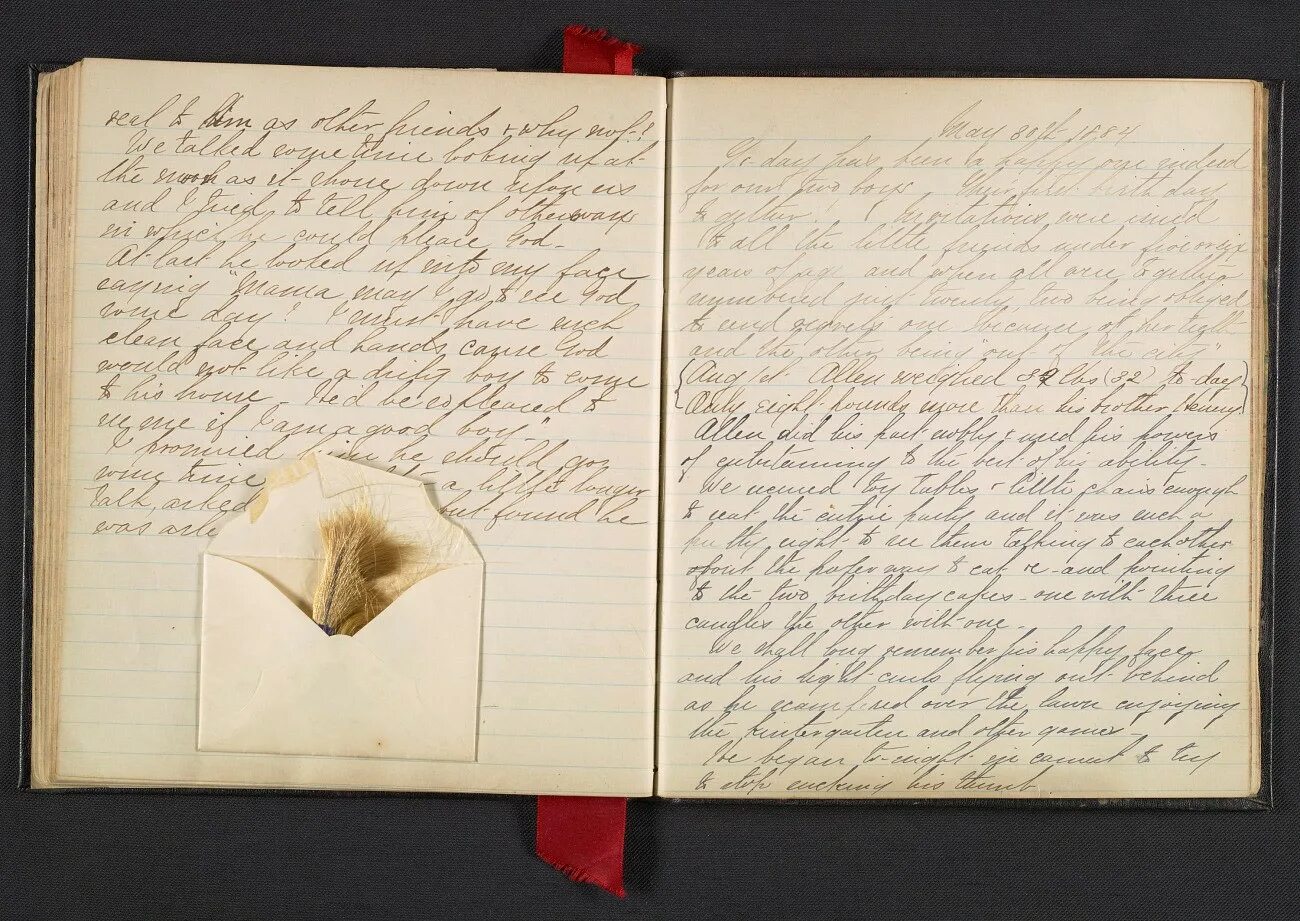 real to him as other friends & why not?
We talked some time looking up at
the moon as it shone down upon us
and I tried to tell him of other ways
in which he could please God.
At last he looked up into my face
saying "Mama may I go to see God
some day? I must have such
clean face and hands cause God
would not like a dirty boy to come
to his home. He'd be so pleased to
see me if I am a good boy."
I promised him he should go
some time a little longer
talk, asked but found he
was asle
May 30th 1884
To-day has been a happy one indeed
for our two boys. Their first birth day
together. Invitations were issued
to all the little friends under five or six
years of age and when all were together
numbered just twenty, two being obliged
to send regrets one because of her
and the other being "out of the city"
{Aug 1st. Allen weighed 39 lbs (32) to-day}
{Only eight pounds more than his brother Henry}
Allen did his part nobly & used his powers
of entertaining to the best of his ability.
We secured toy tables & little chairs enough
to seat the entire party and it was such a
pretty sight to see them talking to each other
about the proper way to eat &c and pointing
to the two birthday cakes - one with three
candles the other with one.
We shall long remember his happy face
and his light curls flying out behind
as he scampered over the lawn enjoying
the kintergarten and other games.
We began to-night in earnest to try
to stop sucking his thumb